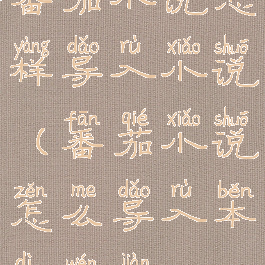 番茄小说怎
yàng dǎo rù xiǎo shuō
样导入小说
fān qié xiǎo shuō
（番茄小说
zěn me dǎo rù běn
怎么导入本
dì wén jiàn